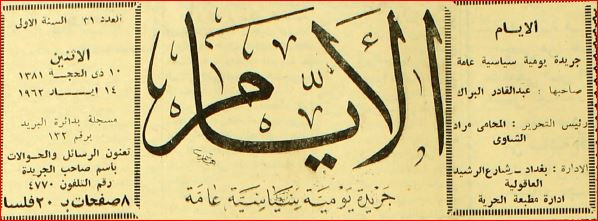 الايام
جريدة يومية سياسية عامة
صاحبها : عبدالقادر البراك
رئيس التحرير : المحامي مراد
الشاوى
الادارة : بغداد ـ شارع الرشيد
العاقولية
ادارة مطبعة الحرية
الأيام
جريدة يومية سياسية عامة
العدد ٣١ السنة الاولى
الاثنين
١٠ ذى الحجة ١٣٨١
١٤ ايار ١٩٦٢
مسجلة بدائرة البريد
برقم ١٣٢
تعنون الرسائل والحوالات
باسم صاحب الجريدة
رقم التلفون ٤٧٧٠
٨ صفحات ب ٢٠ فلسا